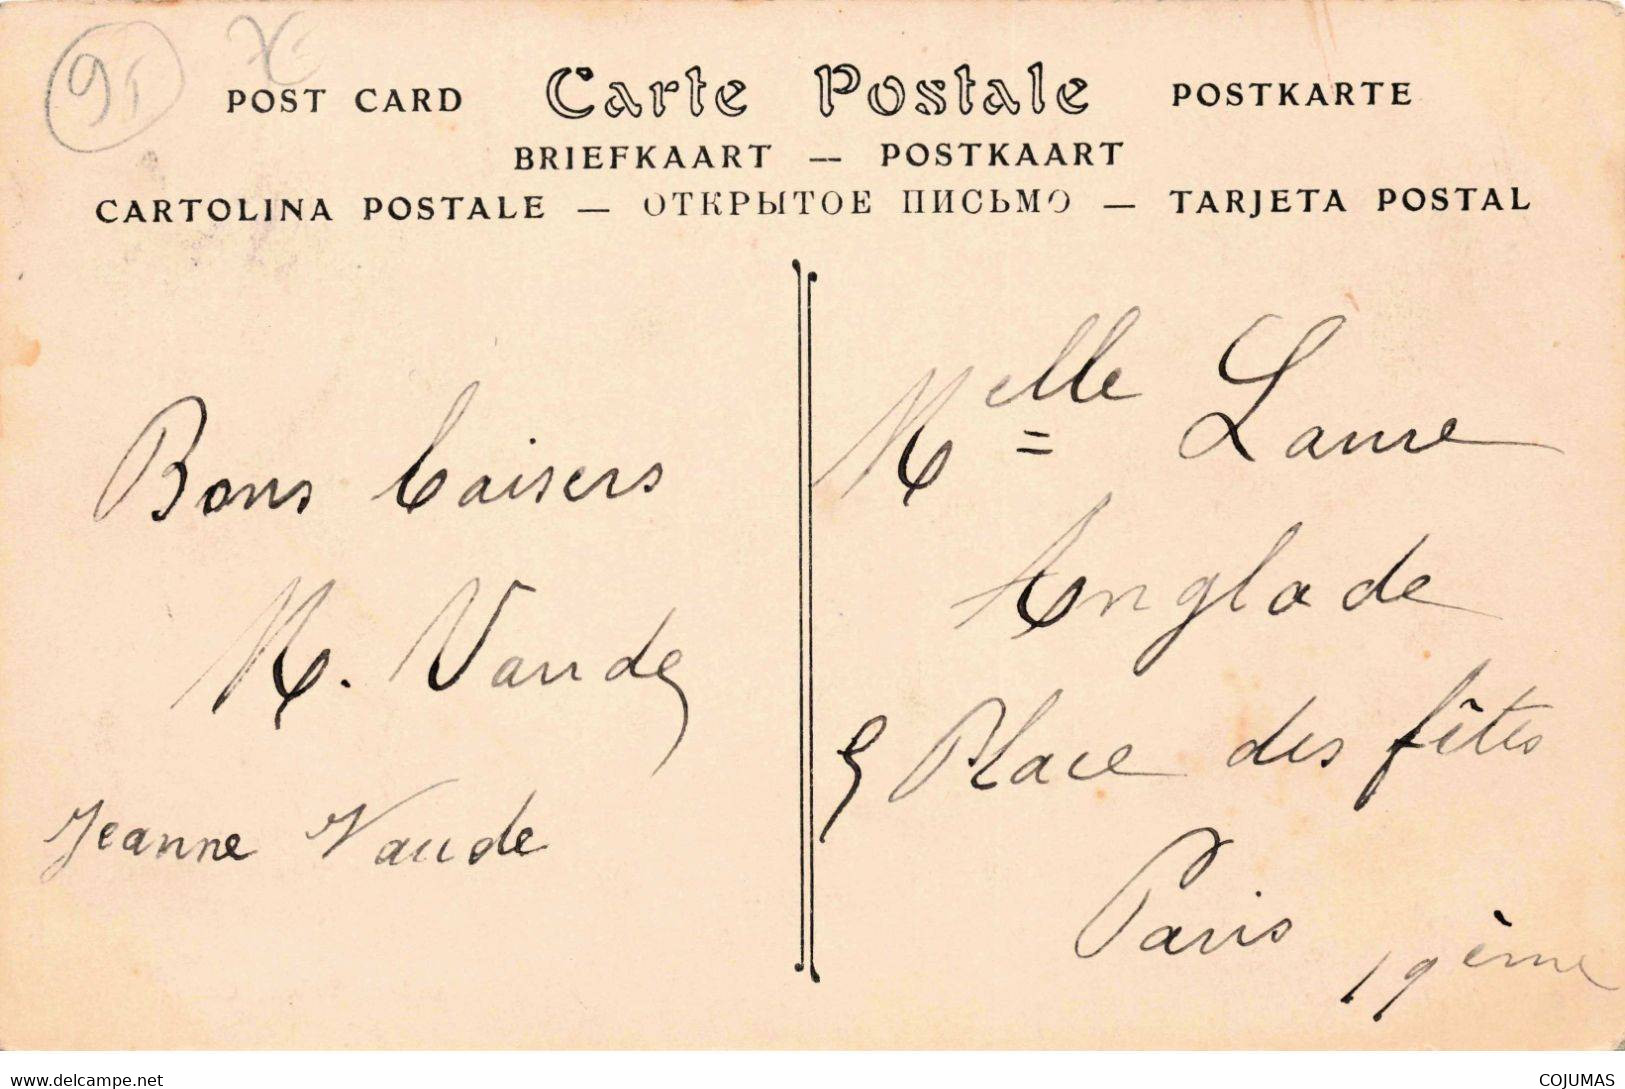 91
POST CARD Carte Postale POSTKARTE
BRIEFKAART — POSTKAART
CARTOLINA POSTALE — ОТКРЫТОЕ ПИСЬМО — TARJETA POSTAL
Bons baisers
M. Vaude
Jeanne Vaude
Melle Laure
Anglade
9 Place des fêtes
Paris 19ème
www.delcampe.net
COJUMAS